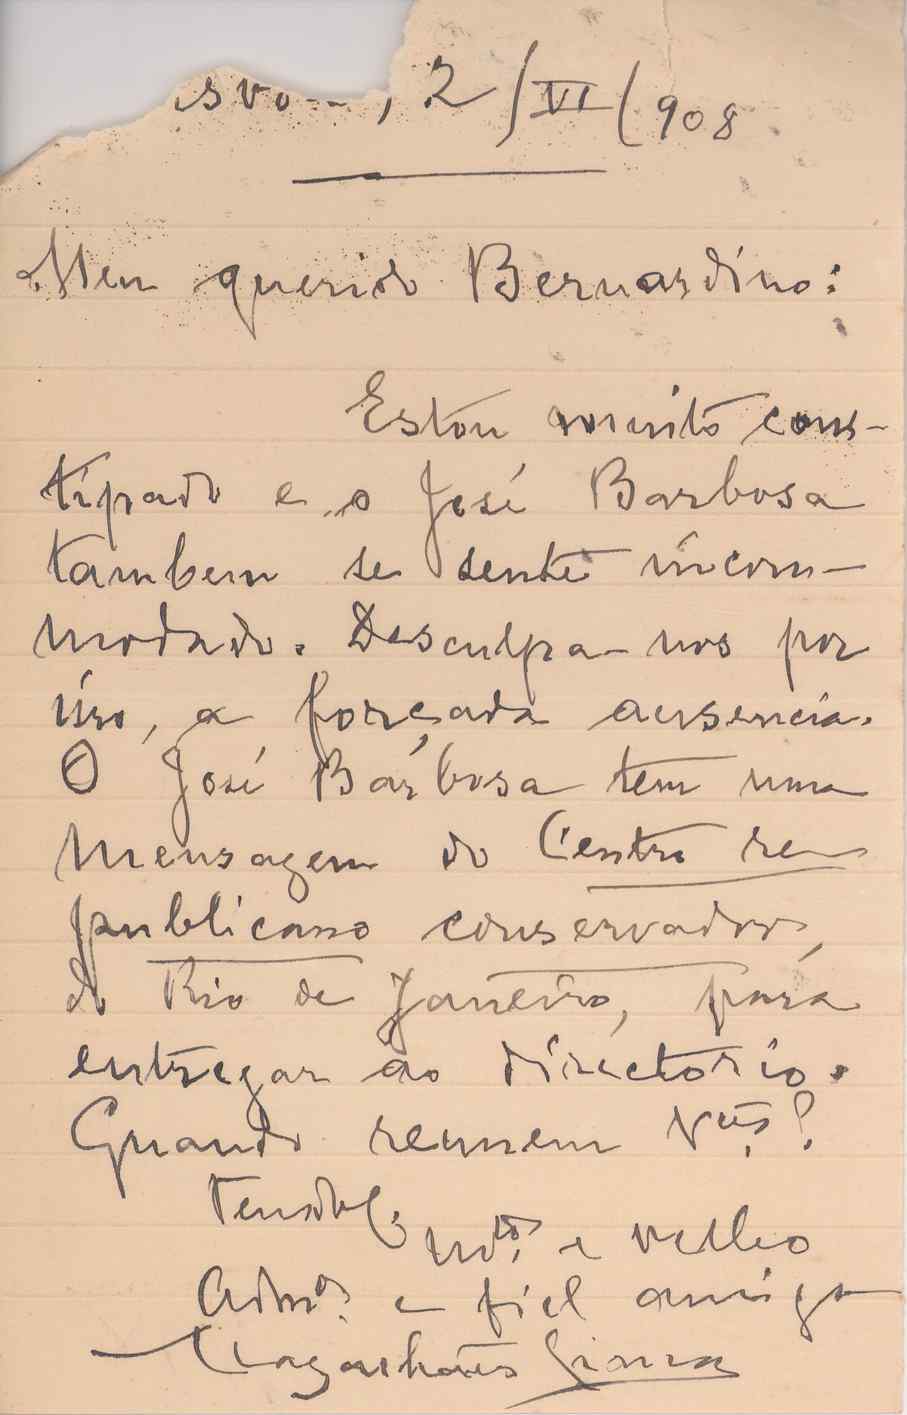 , 2/VI/908
Meu querido Bernardino:
Estou muito cons-
tipado e o José Barbosa
tambem se sente incom-
modado. Desculpa-nos por
isso, a forçada ausencia.
O José Barbosa tem uma
mensagem do Centro re-
publicano conservador,
do Rio de Janeiro, para
entregar ao directorio.
Quando reunem Vces?
e velho
e fiel amigo
Magalhães Lima